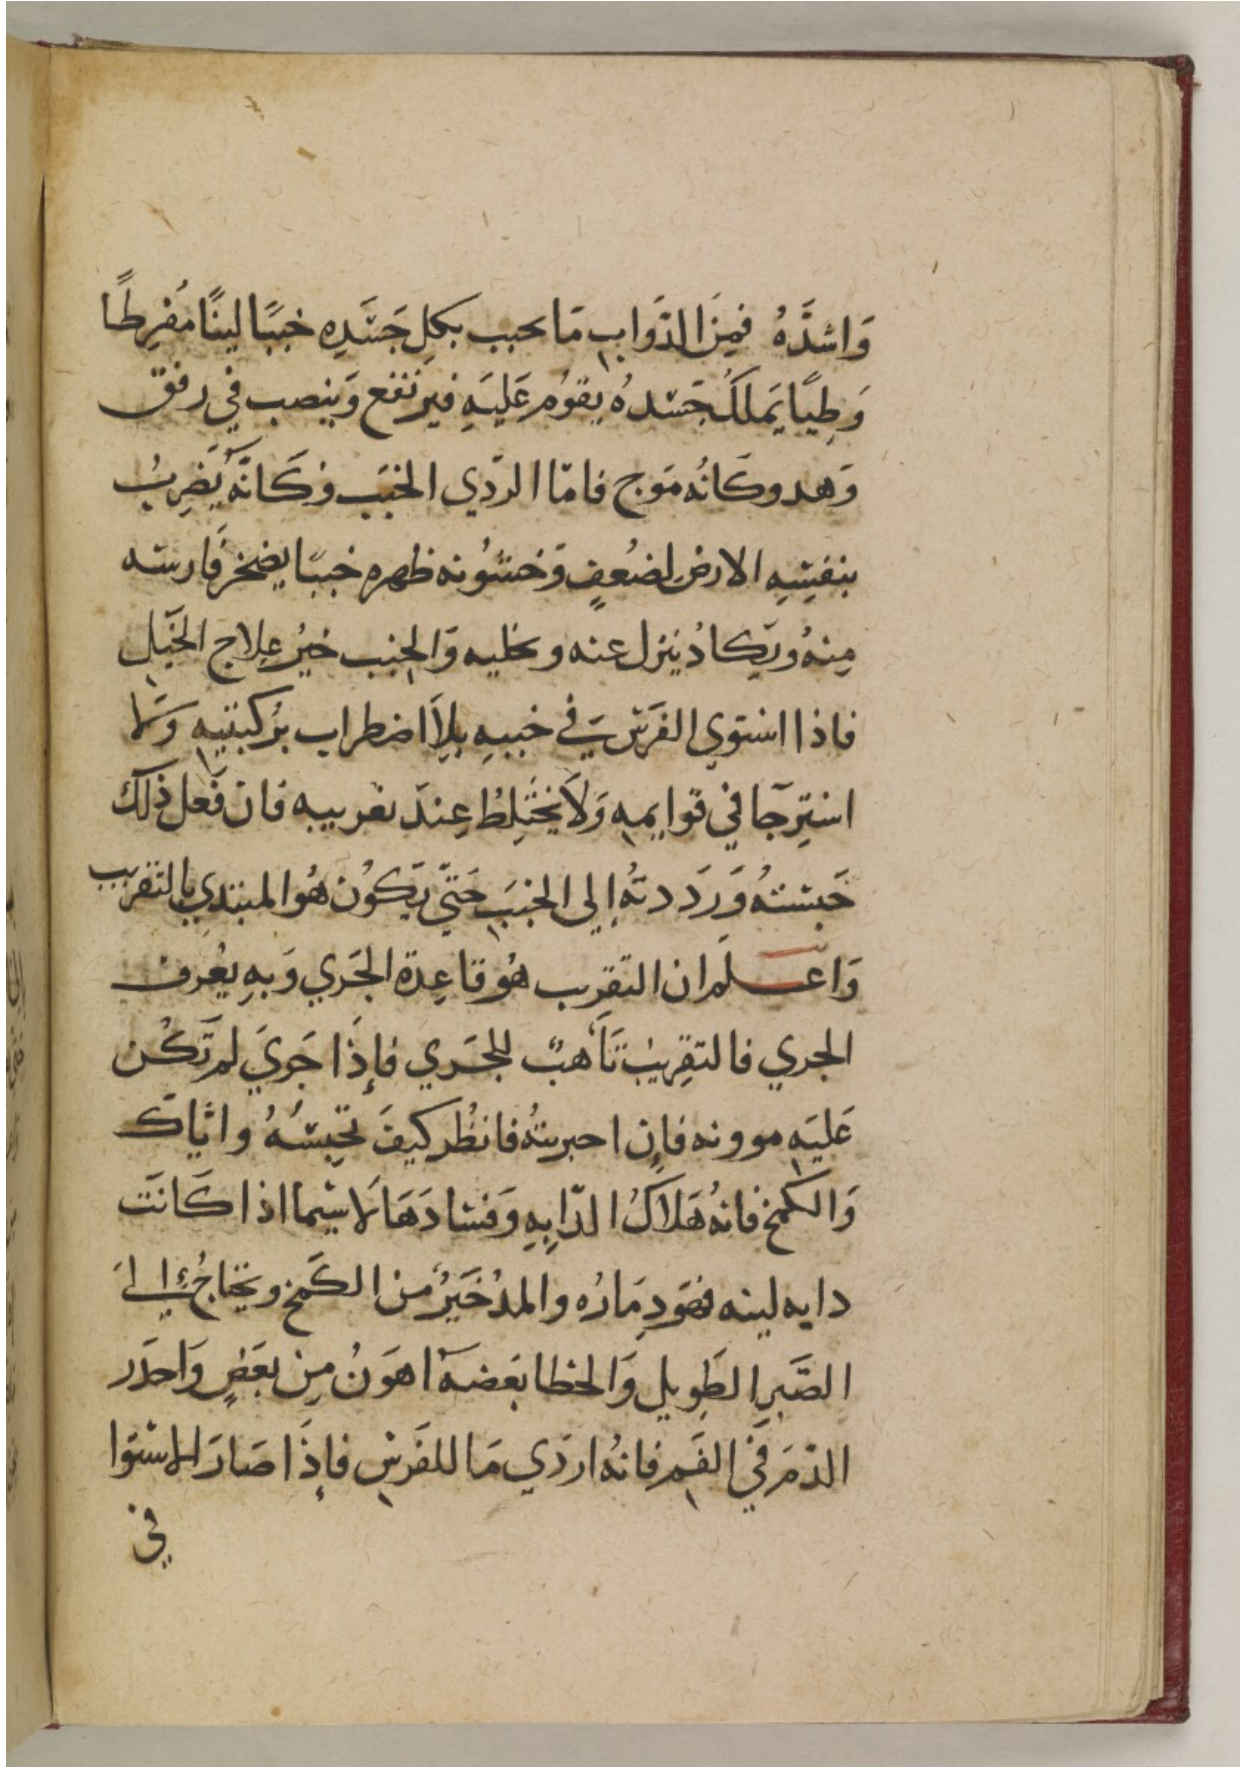 وَاشدَّهُ فمِنَ الدَوابِ مَا يحبب بكلِ جَسَدِه خببًا لينًا مُفرِطًا
وَطِيًا يَملكُ جَسَدهُ يقوُم عَليَهِ فيَرتفع وَينصب في رفق
وَهدو وكَانُه مَوج فامّا الردّي الخبَب فكَانَّهُ يَضِربُ
بنفسِهِ الارض لضُعفٍ وَخشُونه ظهره خببًا يضخر فَارسه
مِنهُ ويَكادُ ينزل عنه ويخليه وَالجنِب خيُر عِلاج الخيَل
فاذا استوي الفرَس في خببهِ بِلاَ اضطراب بُركبتيهِ وَلا
استِرخا في قوايمهِ وَلاَ يختَلِطُ عِندَ تقريبه فان فَعل ذلكَ
حَبستهُ وَرَددتهُ إلى الخببَ حَتيّ يَكوُن هُو المبتدي بالتقريب
وَاعلَم ان التقرِيب هُو قاعِدة الجَري وَبهِ يعُرف
الجري فالتقرِيبُ تَأهبٌ للجَري فإِذَا جَريَ لم تَكُن
عَليَهِ موونه فاِن احبرستهُ فانظُر كيفَ تحِبسُهُ واثياكَ
وَالكَمخ فانهُ هَلاكُ الدّابهِ وَفسَادَهَا لاسَيما اذا كَانَت
دابه لينه فهوَ دِمَارُه والمدُ خَيَرٌ من الكَمخ ويحتاجُ إِليَ
الصَبرِ الطَوِيل وَالخطا بَعضهُ اهوَنُ مِن بعَضٍ وَاحذَر
الدَمَ في الفَم فانهُ اردَي مَا للفَرسِ فإِذَا صَارَ الاستوا
في